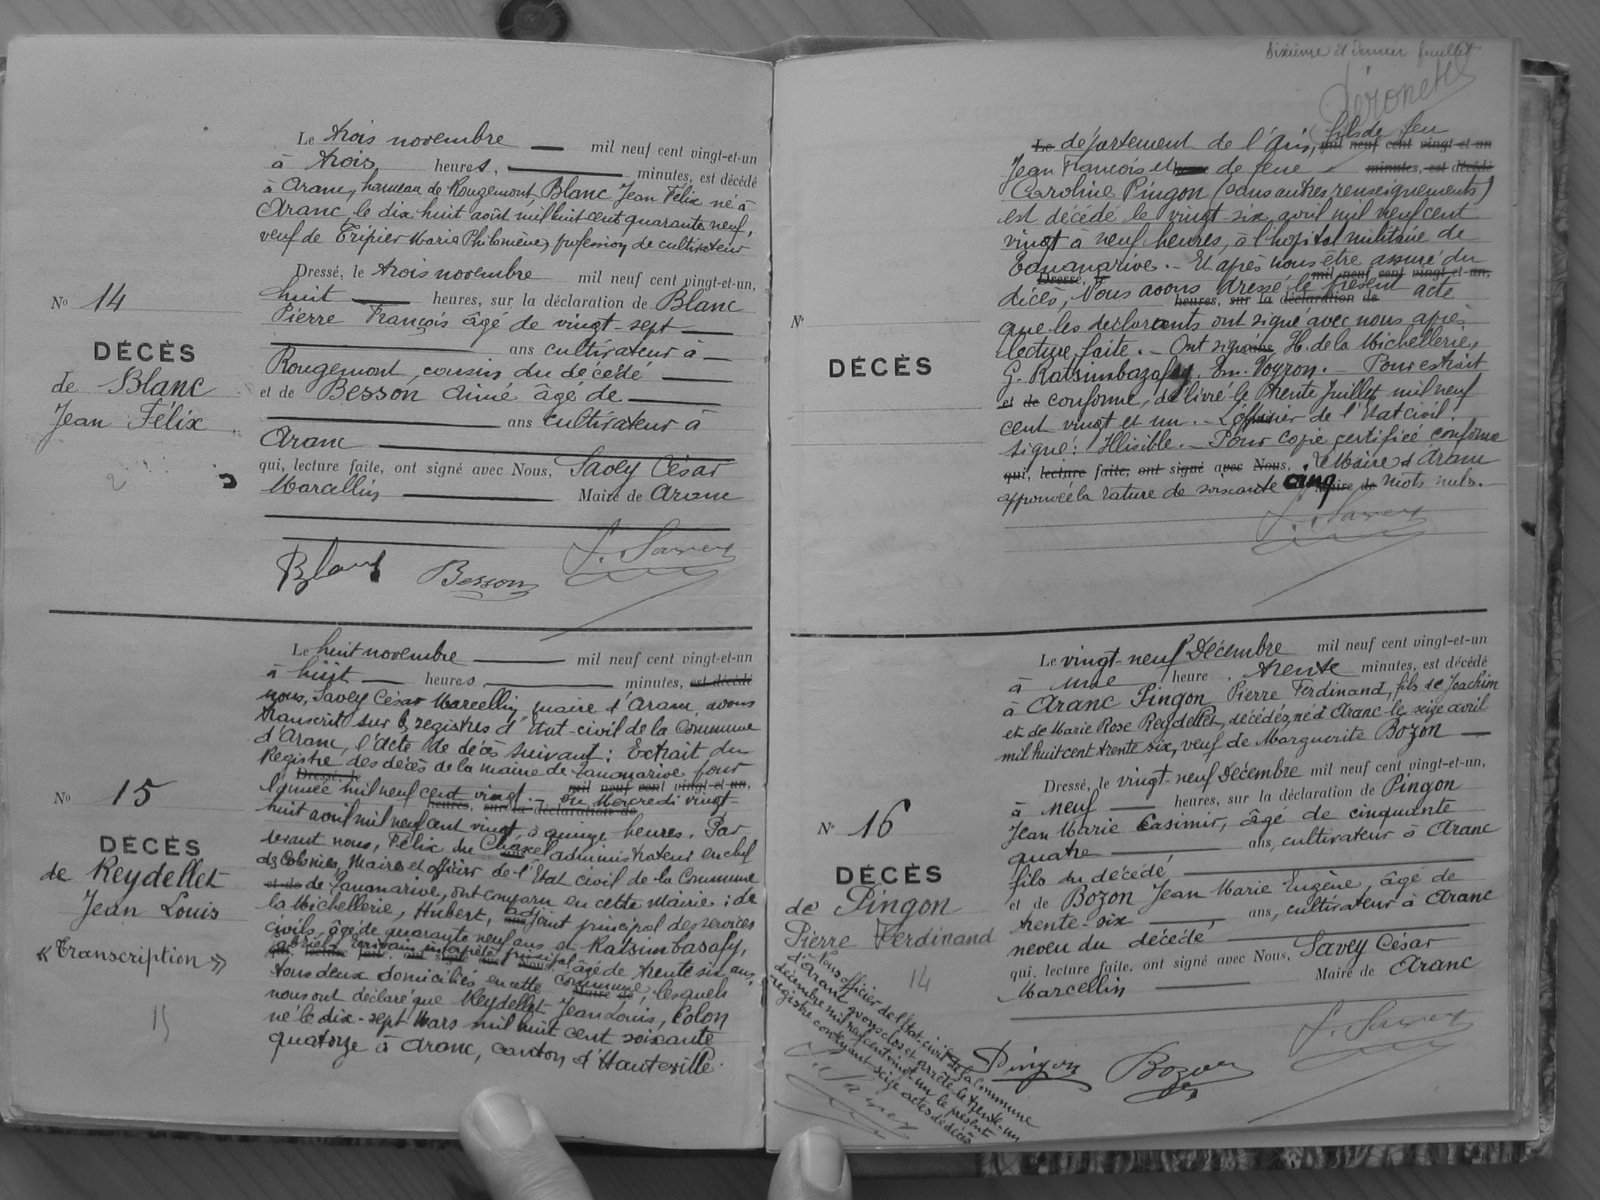 Le trois novembre — mil neuf cent vingt-et-un
à trois heures, — minutes, est décédé
à Aranc, hameau de Rougemont, Blanc Jean Félix né à
Aranc, le dix huit août mil huit cent quarante neuf,
veuf de Tripier Marie Philomène, profession de cultivateur
Dressé, le trois novembre mil neuf cent vingt-et-un,
huit — heures, sur la déclaration de Blanc
Pierre François âgé de vingt-sept —
— ans cultivateur à —
Rougemont, cousin du décédé —
et de Besson Aimé âgé de —
— ans cultivateur à
Aranc —
qui, lecture faite, ont signé avec Nous, Savey César
Marcellin — Maire de Aranc
Blanc Besson J. Savey
No 14
DÉCÈS
de Blanc
Jean Félix
2
Le huit novembre — mil neuf cent vingt-et-un
à huit — heures — minutes, est décédé
nous, Savey César Marcellin, maire d'Aranc, avons
transcrit sur les registres d'Etat-civil de la Commune
d'Aranc, l'acte de décès suivant : Extrait du
Registre des décès de la mairie de Tananarive pour
Dressé, le mil neuf cent vingt-et-un,
l'année mil neuf cent vingt. — Du Mercredi vingt-
heures, sur la déclaration de
huit avril mil neuf cent vingt, à quinze heures. Par
devant nous, Félix du administrateur en chef
des Colonies, Maire et officier de l'Etat civil de la Commune
et de de Tananarive, ont comparu en cette Mairie : de
la Michellerie, Hubert, adjoint principal des services
civils, âgé de quarante neuf ans et Ratsimbazafy,
Gabriel, Ecrivain interprète principal, âgé de trente six ans,
qui, lecture faite, ont signé avec Nous,
tous deux domiciliés en cette commune, lesquels
Maire de
nous ont déclaré que Reydellet Jean Louis, Colon
né le dix-sept Mars mil huit cent soixante
quatorze à Aranc, canton d'Hauteville
No 15
DÉCÈS
de Reydellet
Jean Louis
« Transcription »
15
Sixième et dernier feuillet
Le département de l'Ain, fils de feu
mil neuf cent vingt-et-un
Jean François et de feue — minutes, est décédé
Caroline Pingon (sans autres renseignements)
est décédé le vingt-six avril mil neuf cent
vingt à neuf heures, à l'hopital militaire de
Tananarive. — Et après nous être assuré du
Dressé, le mil neuf cent vingt-et-un,
décès, Nous avons dressé le présent acte
heures, sur la déclaration de
que les déclarants ont signé avec nous après
lecture faite. — Ont signé H. de la Michellerie,
G. Ratsimbazafy. Em. Voyron. — Pour extrait
et de conforme, délivré le trente Juillet mil neuf
cent vingt et un. — L'officier de l'Etat civil.
Signé : Illisible. — Pour copie certifiée conforme
qui, lecture faite, ont signé avec Nous, Le Maire d'Aranc
approuvé la rature de soixante cinq Maire de mots nuls. —
J. Savey
No
DÉCÈS
Le vingt-neuf Décembre mil neuf cent vingt-et-un
à une heure, trente minutes, est décédé
à Aranc Pingon Pierre Ferdinand, fils de Joachim
et de Marie Rose Reydellet, décédés, né à Aranc le seize avril
mil huit cent trente six, veuf de Marguerite Bozon —
Dressé, le vingt-neuf Décembre mil neuf cent vingt-et-un,
à neuf — heures, sur la déclaration de Pingon
Jean Marie Casimir, âgé de cinquante
quatre — ans, cultivateur à Aranc
fils du décédé, —
et de Bozon Jean Marie Eugène, âgé de
trente-six — ans, cultivateur à Aranc
neveu du décédé —
qui, lecture faite, ont signé avec Nous, Savey César
Marcellin — Maire de Aranc
Pingon Bozon J. Savey
No 16
DÉCÈS
de Pingon
Pierre Ferdinand
14
Nous officier de l'Etat civil de la Commune
d'Aranc avons clos et arrêté le trente-un
décembre mil neuf cent vingt un le présent
registre contenant seize actes de décès
J. Savey